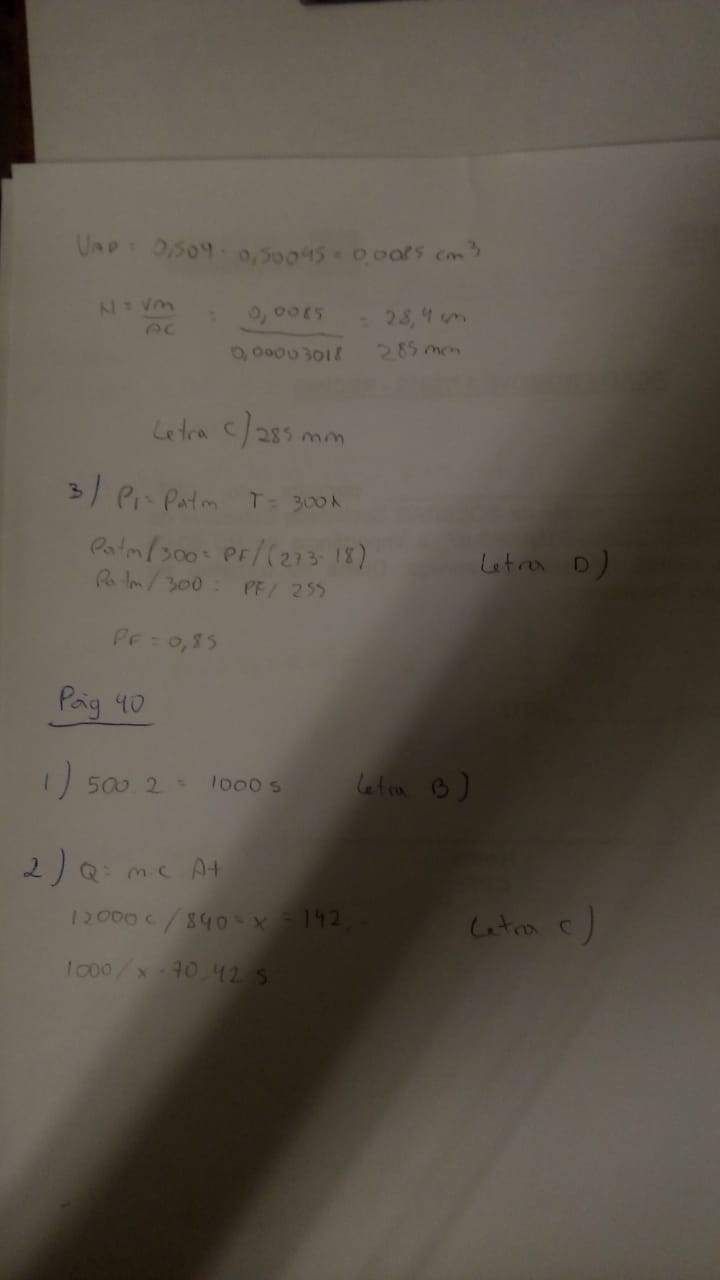 VAP = 0,504 - 0,50045 = 0,0085 cm³
N = Vm/AC = 0,0085/0,00003018 = 28,4 cm
285 mm
Letra C) 285 mm
3) P1 = Patm T = 300k
Patm/300 = PF/(273-18) Letra D)
Patm/300 = PF/255
PF = 0,85
Pág 40
1) 500.2 = 1000 s Letra B)
2) Q = m.c Δt
12000 c/840 = x = 142 Letra C)
1000/x = 70,42 s